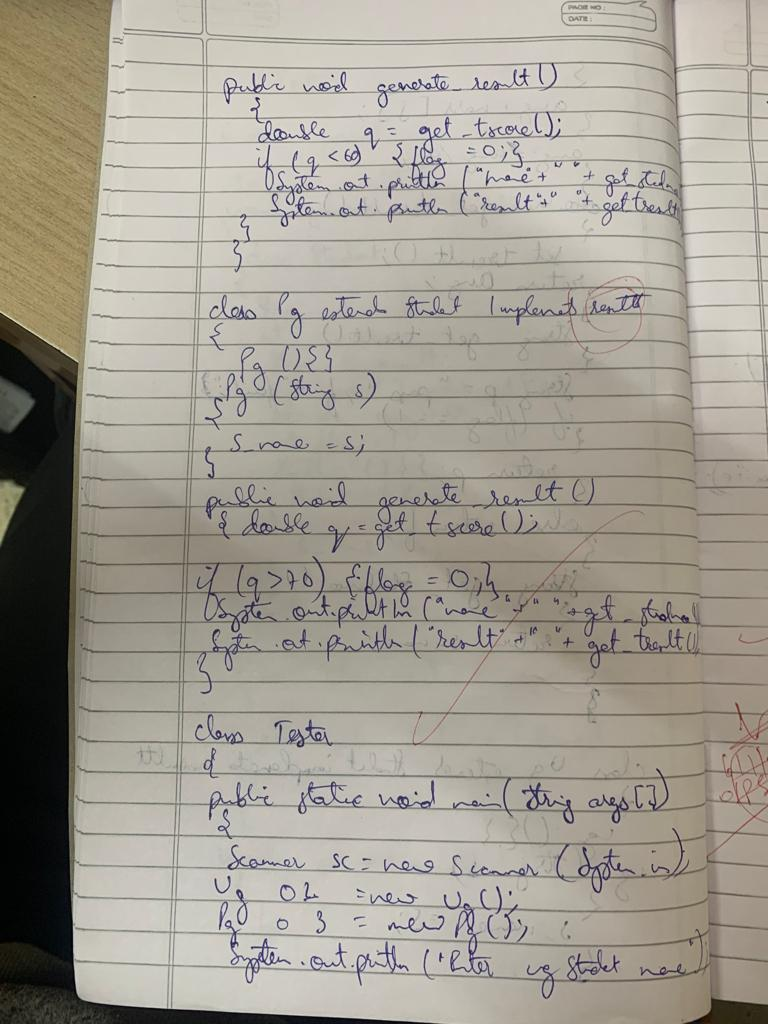 PAGE NO:
DATE:
public void generate_result()
{
double q = get_tscore();
if (q < 60) {flag = 0;}
System.out.println ("name" + " " + get_stdna
System.out.println ("result" + " " + get tresult
}
}
class Pg extends Studet Implemets
{
Pg () {}
Pg (String s)
{
S_name = s;
}
public void generate_result ()
{ double q = get_tscore();
if (q > 70) {flag = 0;}
System.out.println ("name" + " " + get_
System.out.println ("result" + " " + get_tresult()
}
class Tester
{
public static void main(String args[])
{
Scanner sc = new Scanner (System.in);
Ug 02 = new Ug();
Pg 03 = new Pg();
System.out.println ("Enter ug Studet name");